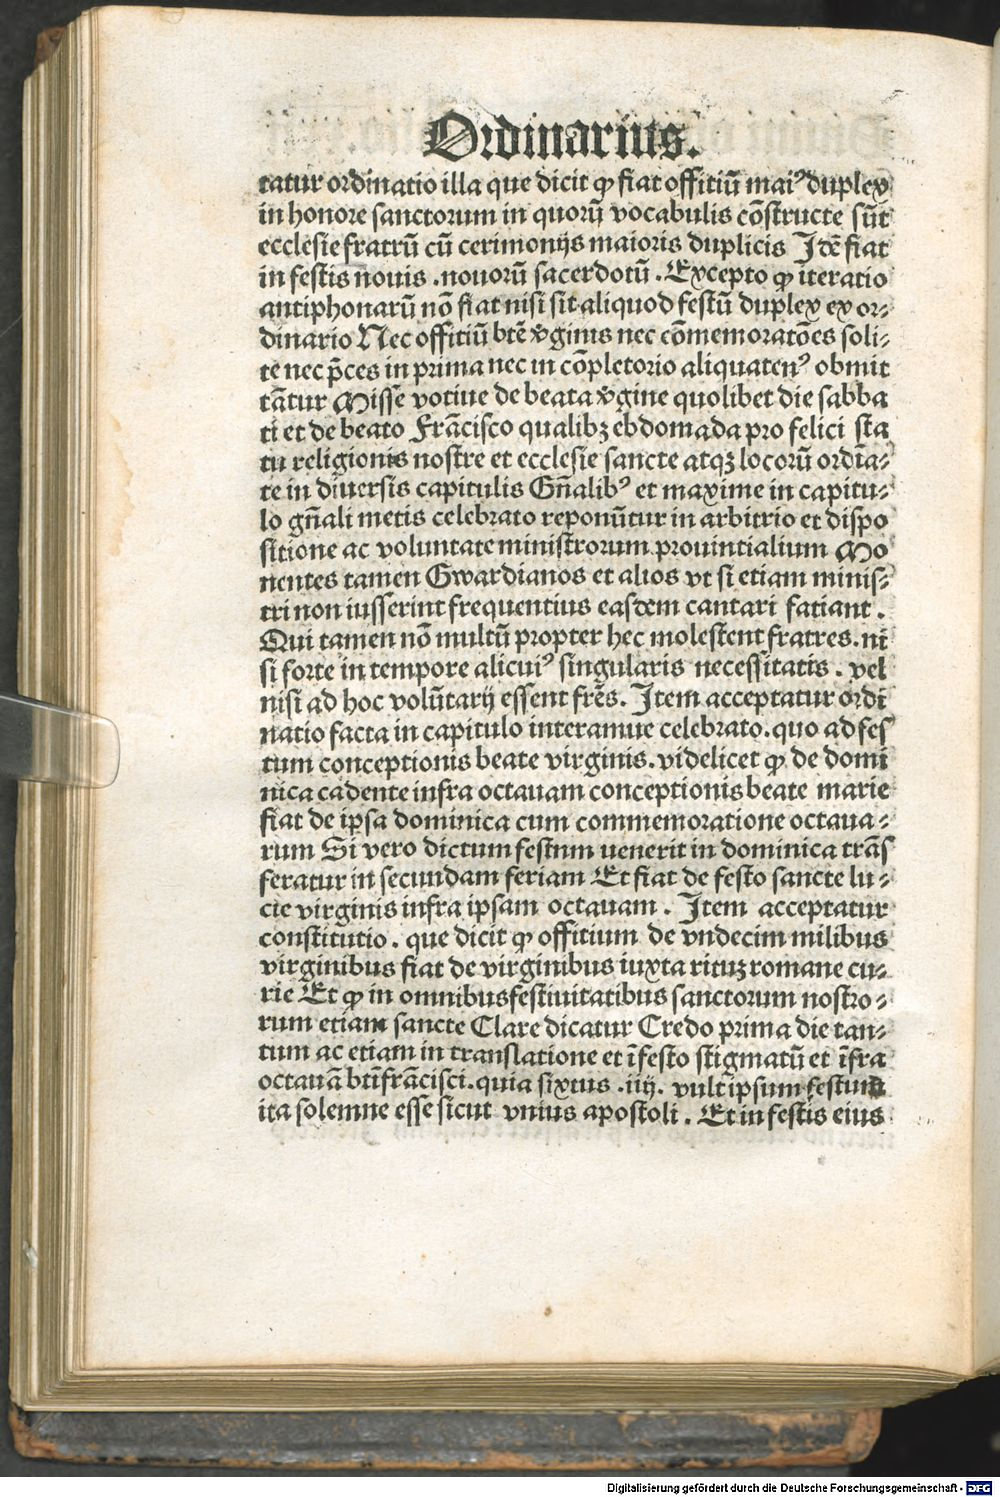 Ordinarius.
tatur ordinatio illa que dicit ꝙ fiat offitiū maiꝰ duplex
in honore sanctorum in quorū vocabulis cōstructe sūt
ecclesie fratrū cū cerimonijs maioris duplicis Itē fiat
in festis nouis . nouorū sacerdotū . Excepto ꝙ iteratio
antiphonarū nō fiat nisi sit aliquod festū duplex ex or⸗
dinario Nec offitiū btē v̄ginis nec cōmemoratōes soli⸗
te nec p̄ces in prima nec in cōpletorio aliquatenꝰ obmit
tātur Misse votiue de beata v̄gine quolibet die sabba
ti et de beato Frācisco qualibꝫ ebdomada pro felici sta
tu religionis nostre et ecclesie sancte atqꝫ locorū ordīa⸗
te in diuersis capitulis Gn̄alibꝰ et maxime in capitu⸗
lo gn̄ali metis celebrato reponūtur in arbitrio et dispo
sitione ac voluntate ministrorum prouintialium Mo
nentes tamen Gwardianos et alios vt si etiam minis⸗
tri non iusserint frequentius easdem cantari fatiant .
Qui tamen nō multū propter hec molestent fratres. ni
si forte in tempore alicuiꝰ singularis necessitatis . vel
nisi ad hoc volūtarij essent fr̄es. Item acceptatur ordi
natio facta in capitulo interamne celebrato. quo ad fes
tum conceptionis beate virginis. videlicet ꝙ de domi
nica cadente infra octauam conceptionis beate marie
fiat de ipsa dominica cum commemoratione octaua⸗
rum Si vero dictum festum uenerit in dominica trās
feratur in secundam feriam Et fiat de festo sancte lu⸗
cie virginis infra ipsam octauam . Item acceptatur
constitutio . que dicit ꝙ offitium de vndecim milibus
virginibus fiat de virginibus iuxta rituꝫ romane cu⸗
rie Et ꝙ in omnibus festiuitatibus sanctorum nostro⸗
rum etiam sancte Clare dicatur Credo prima die tan⸗
tum ac etiam in translatione et īfesto stigmatū et īfra
octauā btī frācisci. quia sixtus .iiij. vult ipsum festum
ita solemne esse sicut vnius apostoli . Et in festis eius
Digitalisierung gefördert durch die Deutsche Forschungsgemeinschaft - DFG